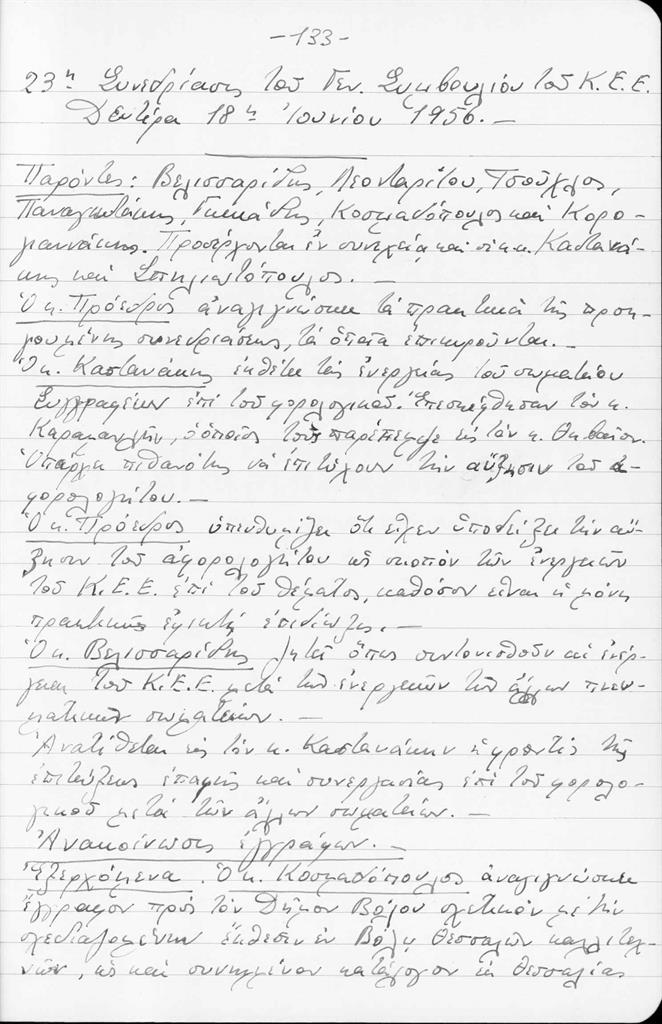 -133-
23η Συνεδρίασις τοῦ Γεν. Συμβουλίου τοῦ Κ.Ε.Ε.
Δευτέρα 18η Ἰουνίου 1956.—
Παρόντες: Βελισσαρίδης, Λεονταρίτου, Τσοῦχλος,
Παναγιωτάκης, Γιαννάδης, Κοσμαδόπουλος καὶ Κορο-
γιαννάκης. Προσέρχονται ἐν συνεχείᾳ καὶ οἱ κ.κ. Καστανά-
κης καὶ Σπηλιωτόπουλος.—
Ὁ κ. Πρόεδρος ἀναγιγνώσκει τὰ πρακτικὰ τῆς προη-
γουμένης συνεδριάσεως, τὰ ὁποῖα ἐπικυροῦνται.—
Ὁ κ. Καστανάκης ἐκθέτει τὰς ἐνεργείας τοῦ σωματείου
Συγγραφέων ἐπὶ τοῦ φορολογικοῦ. Ἐπεσκέφθησαν τὸν κ.
Καραμανλῆν, ὁ ὁποῖος τοὺς παρέπεμψε εἰς τὸν κ. Θηβαῖον.
Ὑπάρχει πιθανότης νὰ ἐπιτύχουν τὴν αὔξησιν τοῦ ἀ-
φορολογήτου.—
Ὁ κ. Πρόεδρος ὑπενθυμίζει ὅτι εἶχεν ὑποδείξει τὴν αὔ-
ξησιν τοῦ ἀφορολογήτου ὡς σκοπὸν τῶν ἐνεργειῶν
τοῦ Κ.Ε.Ε. ἐπὶ τοῦ θέματος, καθόσον εἶναι ἡ μόνη
πρακτικῶς ἐφικτὴ ἐπιδίωξις.—
Ὁ κ. Βελισσαρίδης ζητᾶ ὅπως συντονισθοῦν αἱ ἐνέρ-
γειαι τοῦ Κ.Ε.Ε. μετὰ τῶν ἐνεργειῶν τῶν ἄλλων πνευ-
ματικῶν σωματείων.—
Ἀνατίθεται εἰς τὸν κ. Καστανάκην ἡ φροντὶς τῆς
ἐπιτεύξεως ἐπαφῆς καὶ συνεργασίας ἐπὶ τοῦ φορολο-
γικοῦ μετὰ τῶν ἄλλων σωματείων.—
Ἀνακοίνωσις ἐγγράφων.—
Ἐξερχόμενα. Ὁ κ. Κοσμαδόπουλος ἀναγιγνώσκει
ἔγγραφον πρὸς τὸν Δῆμον Βόλου σχετικὸν μὲ τὴν
σχεδιαζομένην ἔκθεσιν ἐν Βόλῳ Θεσσαλῶν καλλιτε-
χνῶν, ὡς καὶ συνημμένον κατάλογον ἐκ Θεσσαλίας